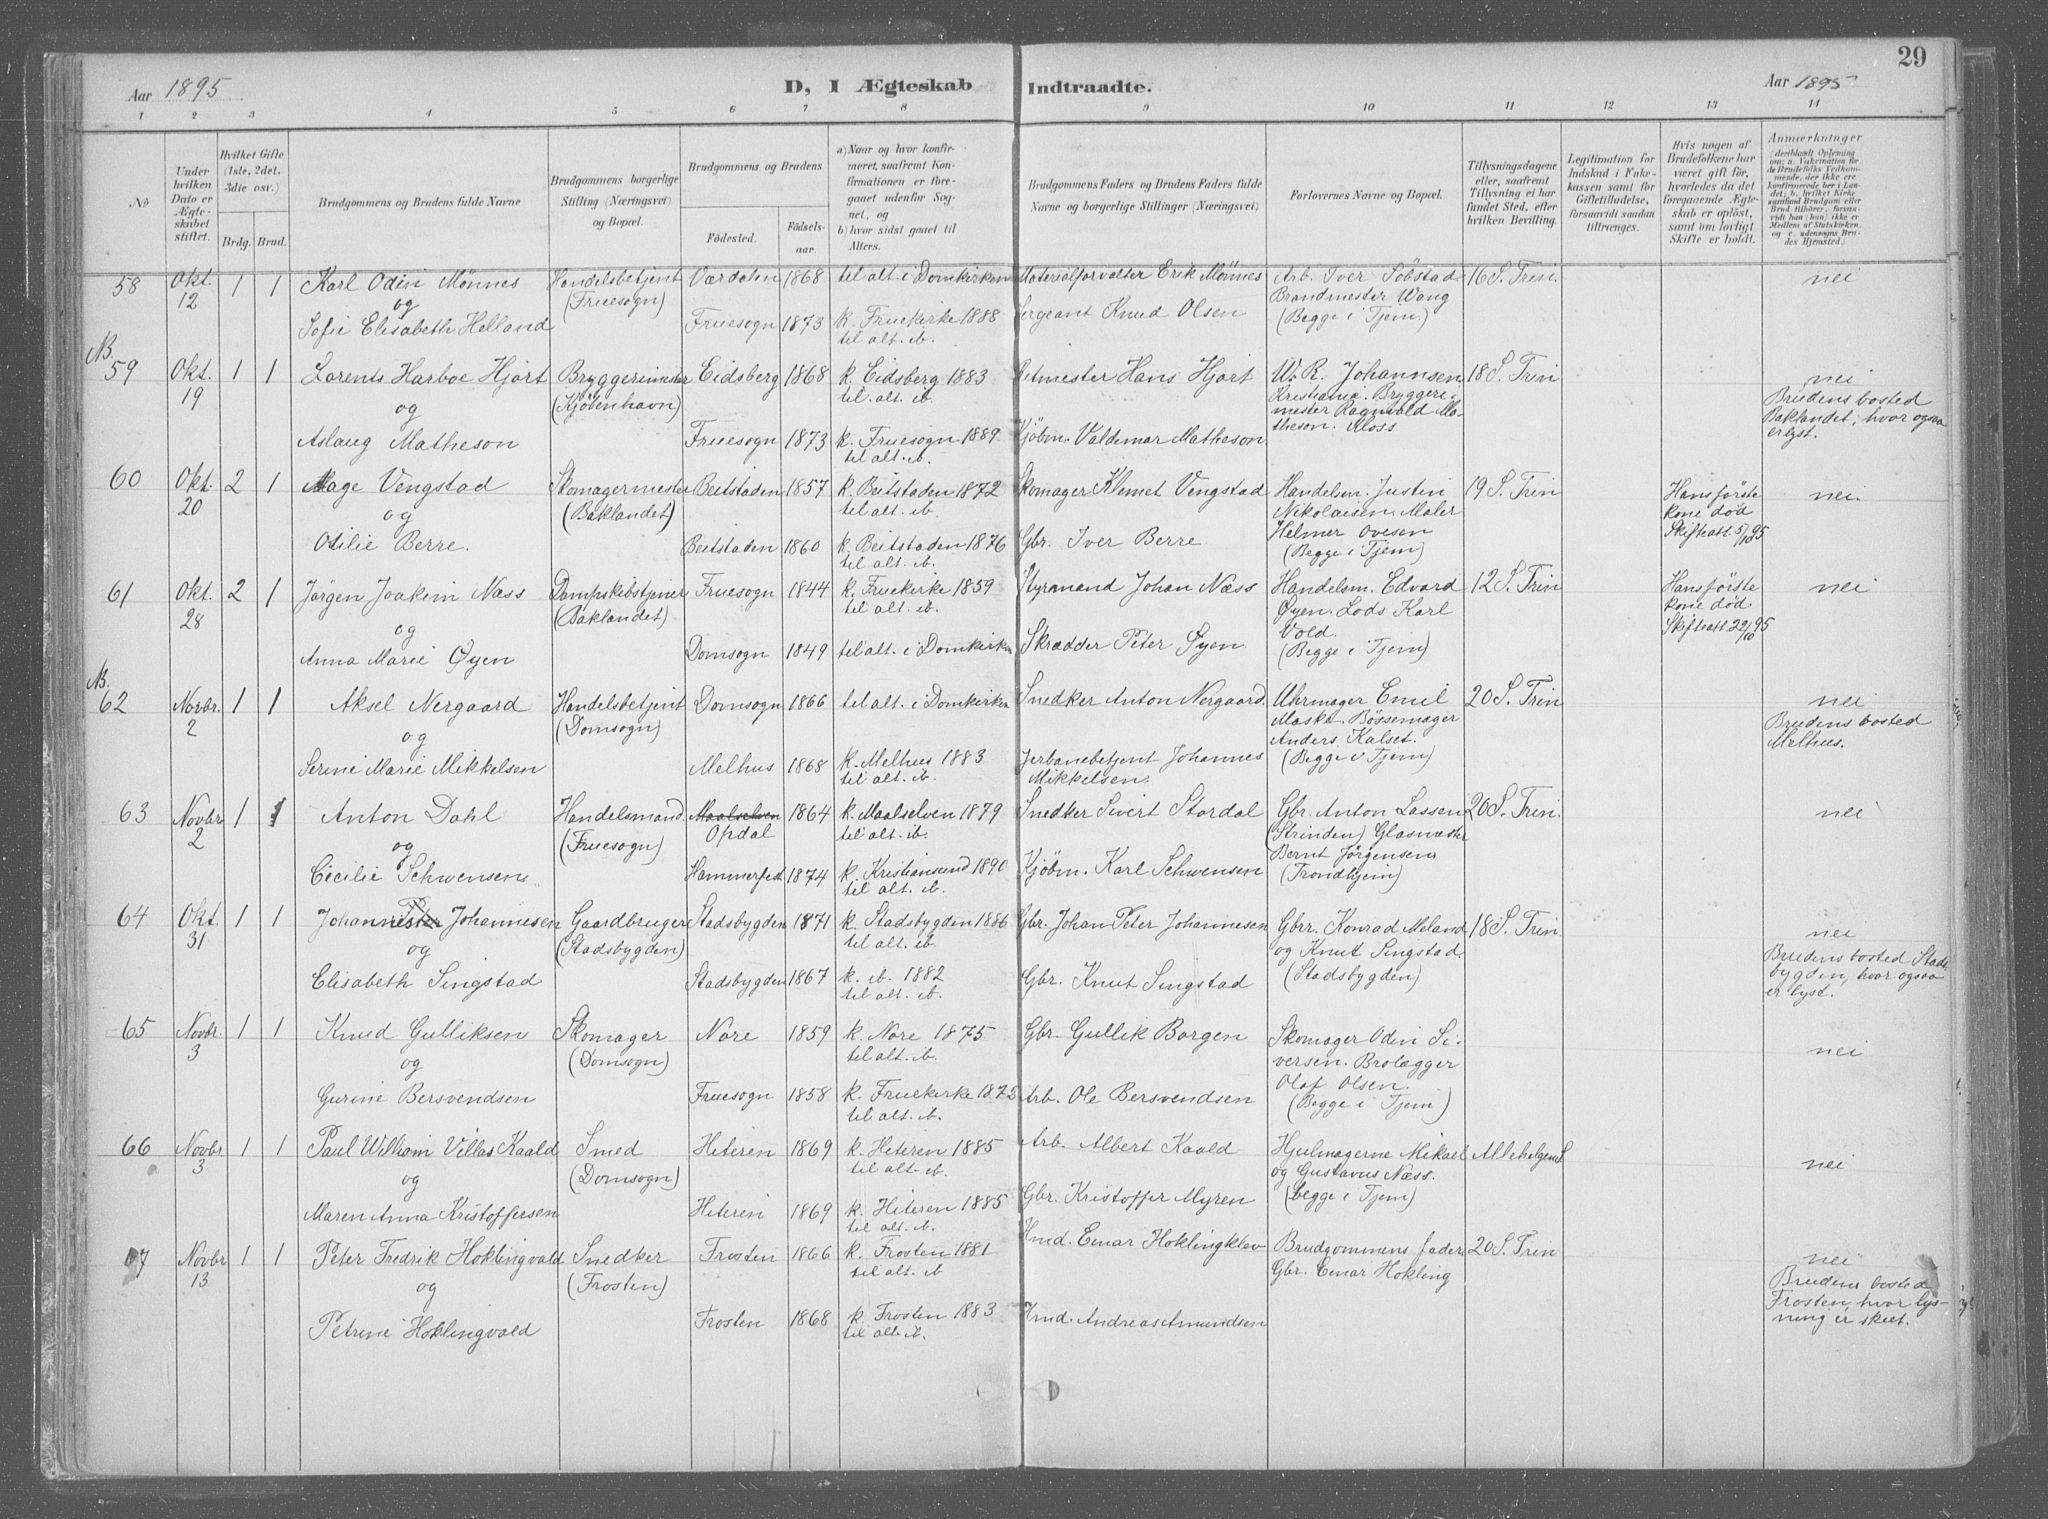 29
Aar 1895
D, I Ægteskab Indtraadte.
Aar 1895
1 2 3 4 5 6 7 8 9 10 11 12 13 14
№
Under hvilken Dato er Ægteskabet stiftet.
Hvilket Gifte (1ste, 2det, 3die osv.)
Brdg. Brud.
Brudgommens og Brudens fulde Navne
Brudgommens borgerlige Stilling (Næringsvei) og Bopæl.
Brudgommens og Brudens
Fødested. Fødselsaar.
a) Naar og hvor konfirmeret, saafremt Konfirmationen er foregaaet udenfor Sognet, og
b) hvor sidst gaaet til Alters.
Brudgommens Faders og Brudens Faders fulde Navne og borgerlige Stillinger (Næringsvei)
Forlovernes Navne og Bopæl.
Tillysningsdagene eller, saafremt Tillysning ei har fundet Sted, efter hvilken Bevilling.
Legitimation for Indskud i Fakekassen samt for Giftetilladelse, forsaavidt saadan tiltrænges.
Hvis nogen af Brudefolkene har været gift før, hvorledes da det foregaaende Ægteskab er opløst, samt om lovligt Skifte er holdt.
Anmærkninger
(deriblandt Oplysning om: a. Vakcination for de Brudefolks Vedkommende, der ikke ere konfirmerede her i Landet; b. hvilket Kirkesamfund Brudgom eller Brud tilhører, forsaavidt han (hun) ikke er Medlem af Statskirken, og c. udensogns Brudes Hjemsted.)
58 Okt. 12 1 1 Karl Odin Mönnes Handelsbetjent (Fruesogn) Værdalen 1868 til alt. i Domkirken Materialforvalter Erik Mönnes Arb. Iver Söbstad Brandmester Wang (Begge i Tjem.) 16 S. Trin. nei
og
Sofie Elisabeth Helland Fruesogn 1873 k. Fruekirke 1888 til alt. ib. Sergeant Knud Olsen
N.
59 Okt. 19 1 1 Lorents Harboe Hjort Bryggerimester (Kjöbenhavn) Eidsberg 1868 k. Eidsberg 1883 til alt. ib. Ritmester Hans Hjort W. R. Johannsen Kristiania. Bryggerimester Ragnvald Matheson. Moss. 18 S. Trin nei
Brudens bosted Baklandet, hvor ogsaa er lyst.
og
Aslaug Matheson Fruesogn 1873 k. Fruesogn 1889 til alt. ib. Kjöbm. Valdemar Matheson
60 Okt. 20 2 1 Aage Vengstad Skomagermester (Baklandet) Beitstaden 1857 k. Beitstaden 1872 til alt. ib. Skomager Klemet Vengstad Handelsm. Justin Nikolaisen. Maler Helmer Ovesen (Begge i Tjem) 19 S. Trin Hans förste kone död Skifteatt. 5/10 95 nei.
og
Otilie Berre. Beitstaden 1860 k. Beitstaden 1876 til alt. ib. Gbr. Iver Berre
61 Okt. 28 2 1 Jørgen Joakim Næss Dampskibstjener (Baklandet) Fruesogn 1844 k. Fruekirke 1859 til alt. ib. Styrmand Johan Næss Handelsm. Edvard Øyen. Lods Karl Vold. (Begge i Tjem) 12 S. Trin Hans förste kone död Skifteatt. 22/10 95 nei
og
Anna Marie Øyen Domsogn 1849 til alt. i Domkirken Skrædder Peter Øyen.
N.
62 Novbr. 2 1 1 Aksel Nergaard Handelsbetjent (Domsogn) Domsogn 1866 til alt. i Domkirken Snedker Anton Nergaard. Uhrmager Emil Maske. Bössemager Anders Kalset. (Begge i Tjem) 20 S. Trin nei
Brudens bosted Melhus.
og
Serine Marie Mikkelsen Melhus 1868 k. Melhus 1883 til alt. ib. Jerbanebetjent Johannes Mikkelsen.
63 Novbr 2 1 1 Anton Dahl Handelsmand. (Fruesogn) Maalselven Opdal 1864 k. Maalselven 1879 til alt. ib. Snedker Sivert Stordal Gbr. Anton Lassen (Strinden) Glasmester Bernt Jørgensen (Trondhjem) 20 S. Trin. nei
og
Cecilie Schwensen Hammerfest 1874 k. Kristiansund 1890 til alt. ib. Kjöbm. Karl Schwensen
64 Okt. 31 1 1 Johan Johannesen Gaardbruger (Stadsbygden) Stadsbygden 1871 k. Stadsbygden 1886 til alt. ib. Gbr. Johan Peter Johannesen Gbrr. Konrad Meland og Knut Singstad. (Stadsbygden) 18 S. Trin. nei
Brudens bosted Stadsbygden, hvor ogsaa er lyst.
og
Elisabeth Singstad Stadsbygden 1867 k. ib. 1882 til alt. ib. Gbr. Knut Singstad
65 Novbr. 3 1 1 Knud Gulliksen Skomager (Domsogn) Nore 1859 k. Nore 1875 til alt. ib. Gbr. Gullik Borgen Skomager Odin Siversen. Brolægger Olaf Olsen. (Begge i Tjem) nei
og
Gurine Bersvendsen Fruesogn 1858 k. Fruekirke 1873 til alt. ib. Arb. Ole Bersvendsen
66 Novbr 3 1 1 Paul William Villas Kaald Smed (Domsogn) Hiteren 1869 k. Hiteren 1885 til alt. ib. Arb. Albert Kaald Hjulmagerne Mikael og Gustavus Næss. (begge i Tjem) Allehelgens nei
og
Maren Anna Kristoffersen Hiteren 1869 k. Hiteren 1885 til alt. ib. Gbr. Kristoffer Myren
67 Novbr 13 1 1 Peter Fredrik Hoklingvald Snedker (Frosten) Frosten 1866 k. Frosten 1881 til alt. ib Hmd. Einar Hoklingklev Brudgommens fader Gbr. Einar Hokling 20 S. Trin nei
Brudens bosted Frosten, hvor lysning er skeet.
og
Petrine Hoklingvald Frosten 1868 k. Frosten 1883 til alt. ib. Hmd. Andreas Amundsen